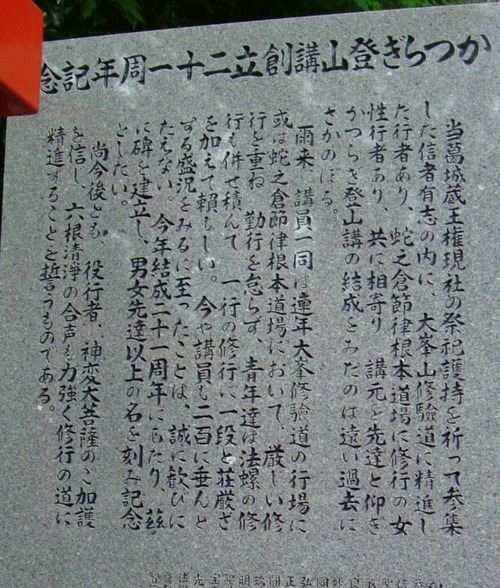 かつらぎ登山講創立二十一周年記念
当葛城蔵王権現社の祭祀護持を祈って参集
した信者有志の内に、大峯山修験道に精進し
た行者あり、蛇之倉節律根本道場に修行の女
性行者あり、共に相寄り 講元を先達と仰ぎ
かつらぎ登山講の結成をみたのは遠い過去に
さかのぼる。
雨来 講員一同は連年大峯修験道の行場に
或は蛇之倉節律根本道場において、厳しい修
行を重ね 勤行を怠らず、青年達は法螺の修
行も併せ積んで 一行の修行に一段と荘厳さ
を加えて頼もしい。今や講員も二百に垂んと
する盛況をみるに至ったことは、誠に歓びに
たえない。今年結成二十一周年にあたり、茲
に碑を建立し、男女先達以上の名を刻み記念
としたい。
尚今後とも、役行者、神変大菩薩のご加護
を信し、六根清浄の合声も力強く修行の道に
精進することを誓うものである。